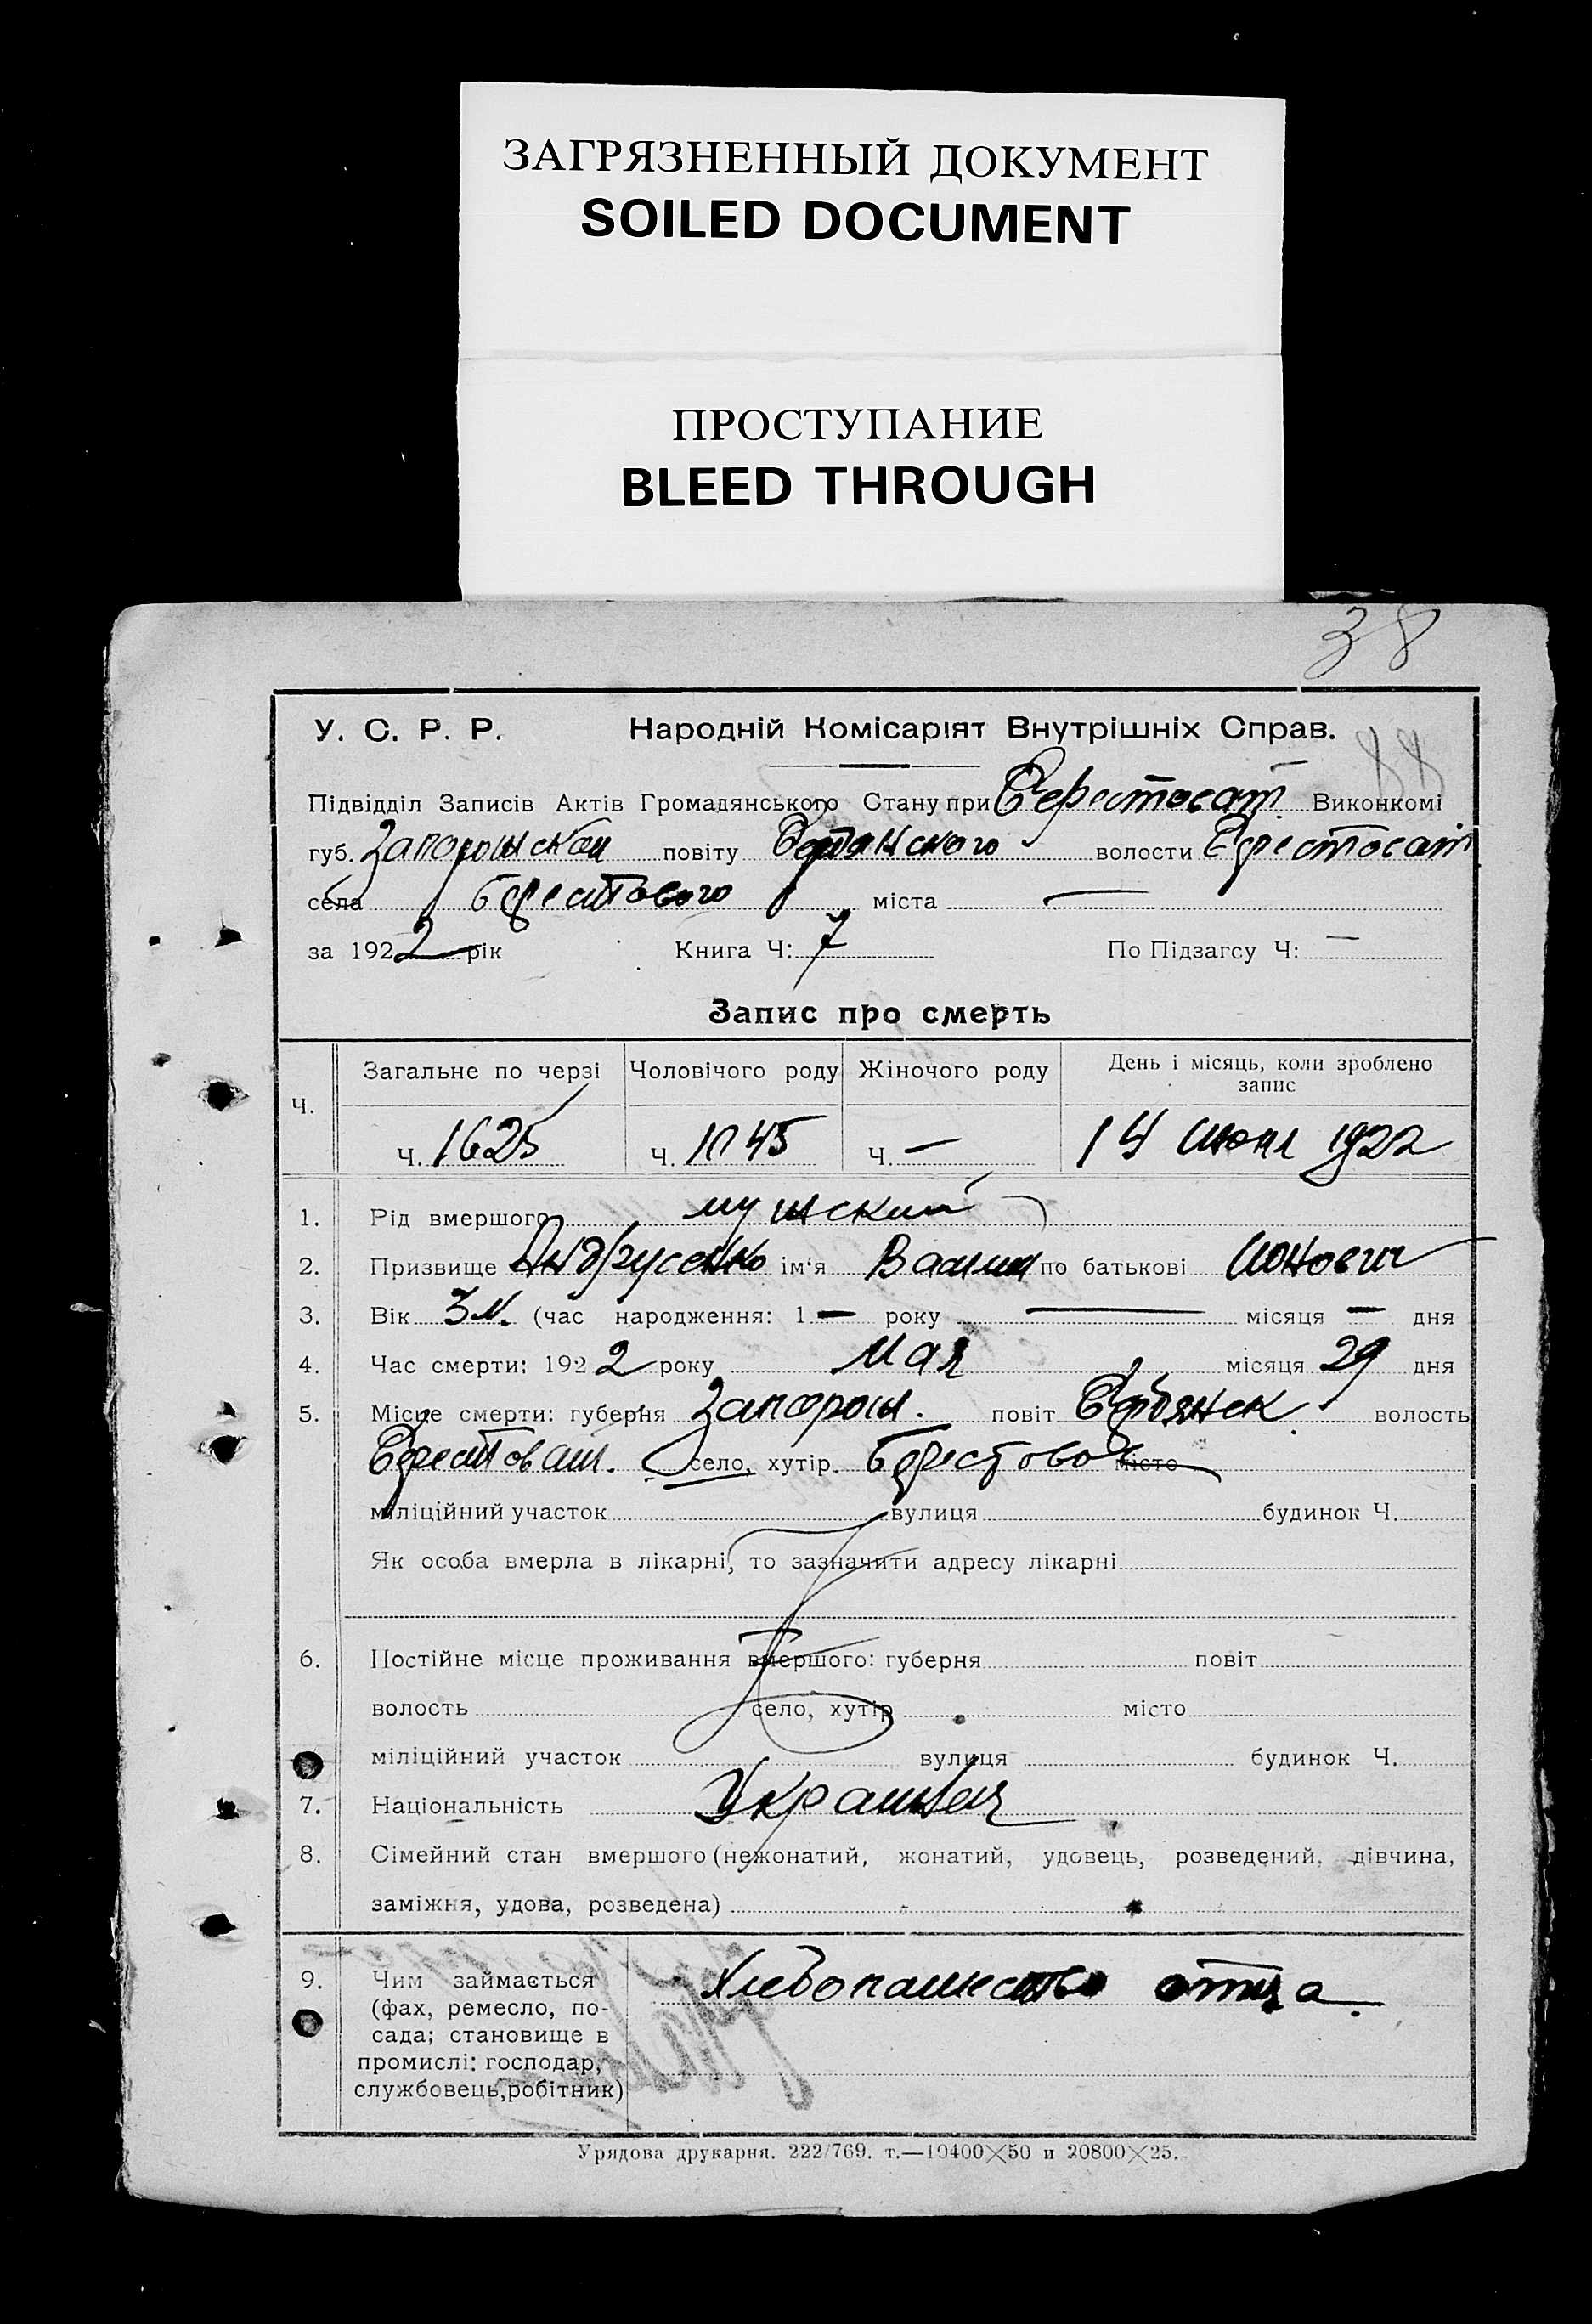 ЗАГРЯЗНЕННЫЙ ДОКУМЕНТ
SOILED DOCUMENT
ПРОСТУПАНИЕ
BLEED THROUGH
38
У. С. Р. Р. Народній Комісаріят Внутрішніх Справ.
Підвідділ Записів Актів Громадянського Стану при Виконкомі
губ. повіту волости
села Берестового міста —
за 1922 рік Книга Ч: 7 По Підзагсу Ч: —
Запис про смерть
Ч. Загальне по черзі Чоловічого роду Жіночого роду День і місяць, коли зроблено
запис
Ч. 1625 Ч. Ч. — 14 1922
1. Рід вмершого мушский
2. Призвище Андрусенко ім'я по батькові
3. Вік 3 м. (час народження: 1 — року — місяця — дня
4. Час смерти: 1922 року Мая місяця 29 дня
5. Місце смерти: губерня Запорош. повіт волость
село, хутір. Берестово місто
міліційний участок вулиця будинок Ч.
Як особа вмерла в лікарні, то зазначити адресу лікарні
6. Постійне місце проживання вмершого: губерня повіт
волость село, хутір місто
міліційний участок вулиця будинок Ч.
7. Національність
8. Сімейний стан вмершого (нежонатий, жонатий, удовець, розведений, дівчина,
заміжня, удова, розведена)
9. Чим займається отца.
(фах, ремесло, по-
сада; становище в
промислі: господар,
службовець, робітник)
Урядова друкарня. 222/769. т.—10400×50 и 20800×25.